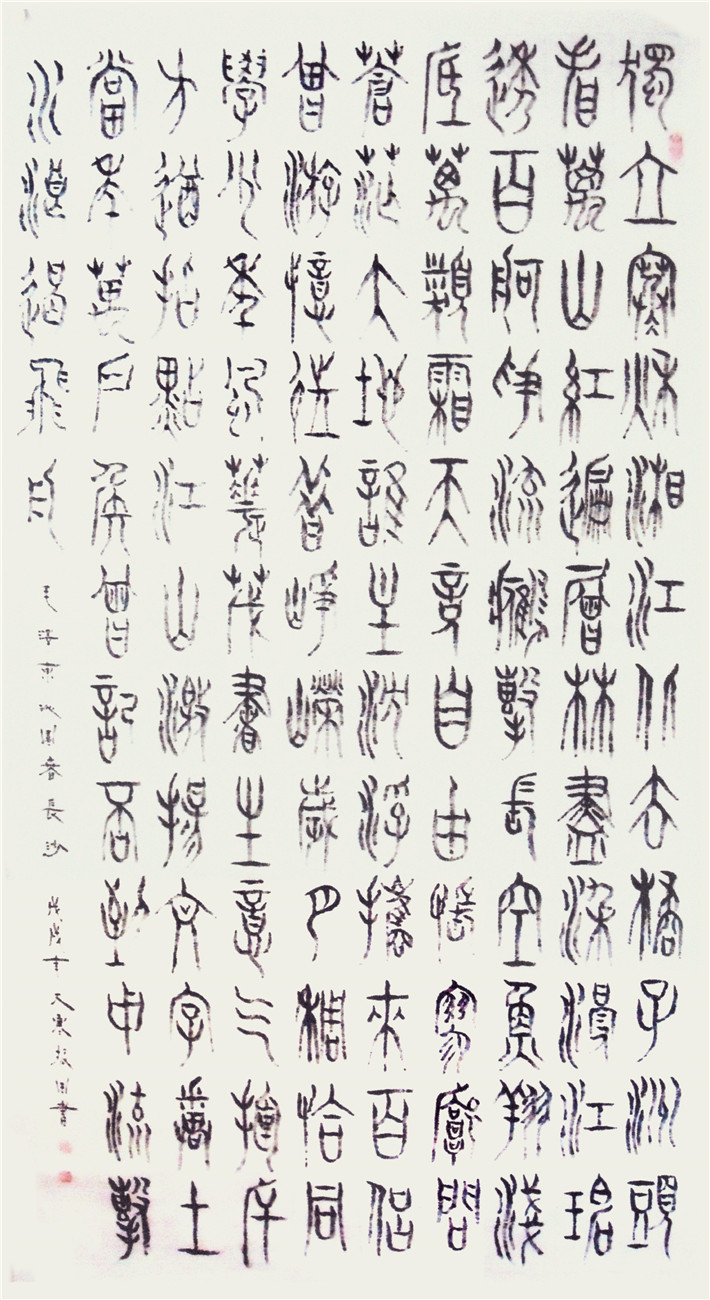 獨立寒秋湘江北去橘子洲頭
看萬山紅遍層林盡染漫江碧
透百舸爭流鷹擊長空魚翔淺
底萬類霜天競自由悵寥廓問
蒼茫大地誰主沉浮攜來百侶
曾游憶往昔崢嶸歲月稠恰同
學少年風華茂書生意气揮斥
方遒指點江山激揚文字糞土
當年萬戶侯曾記否到中流擊
水浪遏飛舟
毛澤東沁園春長沙 戊戌